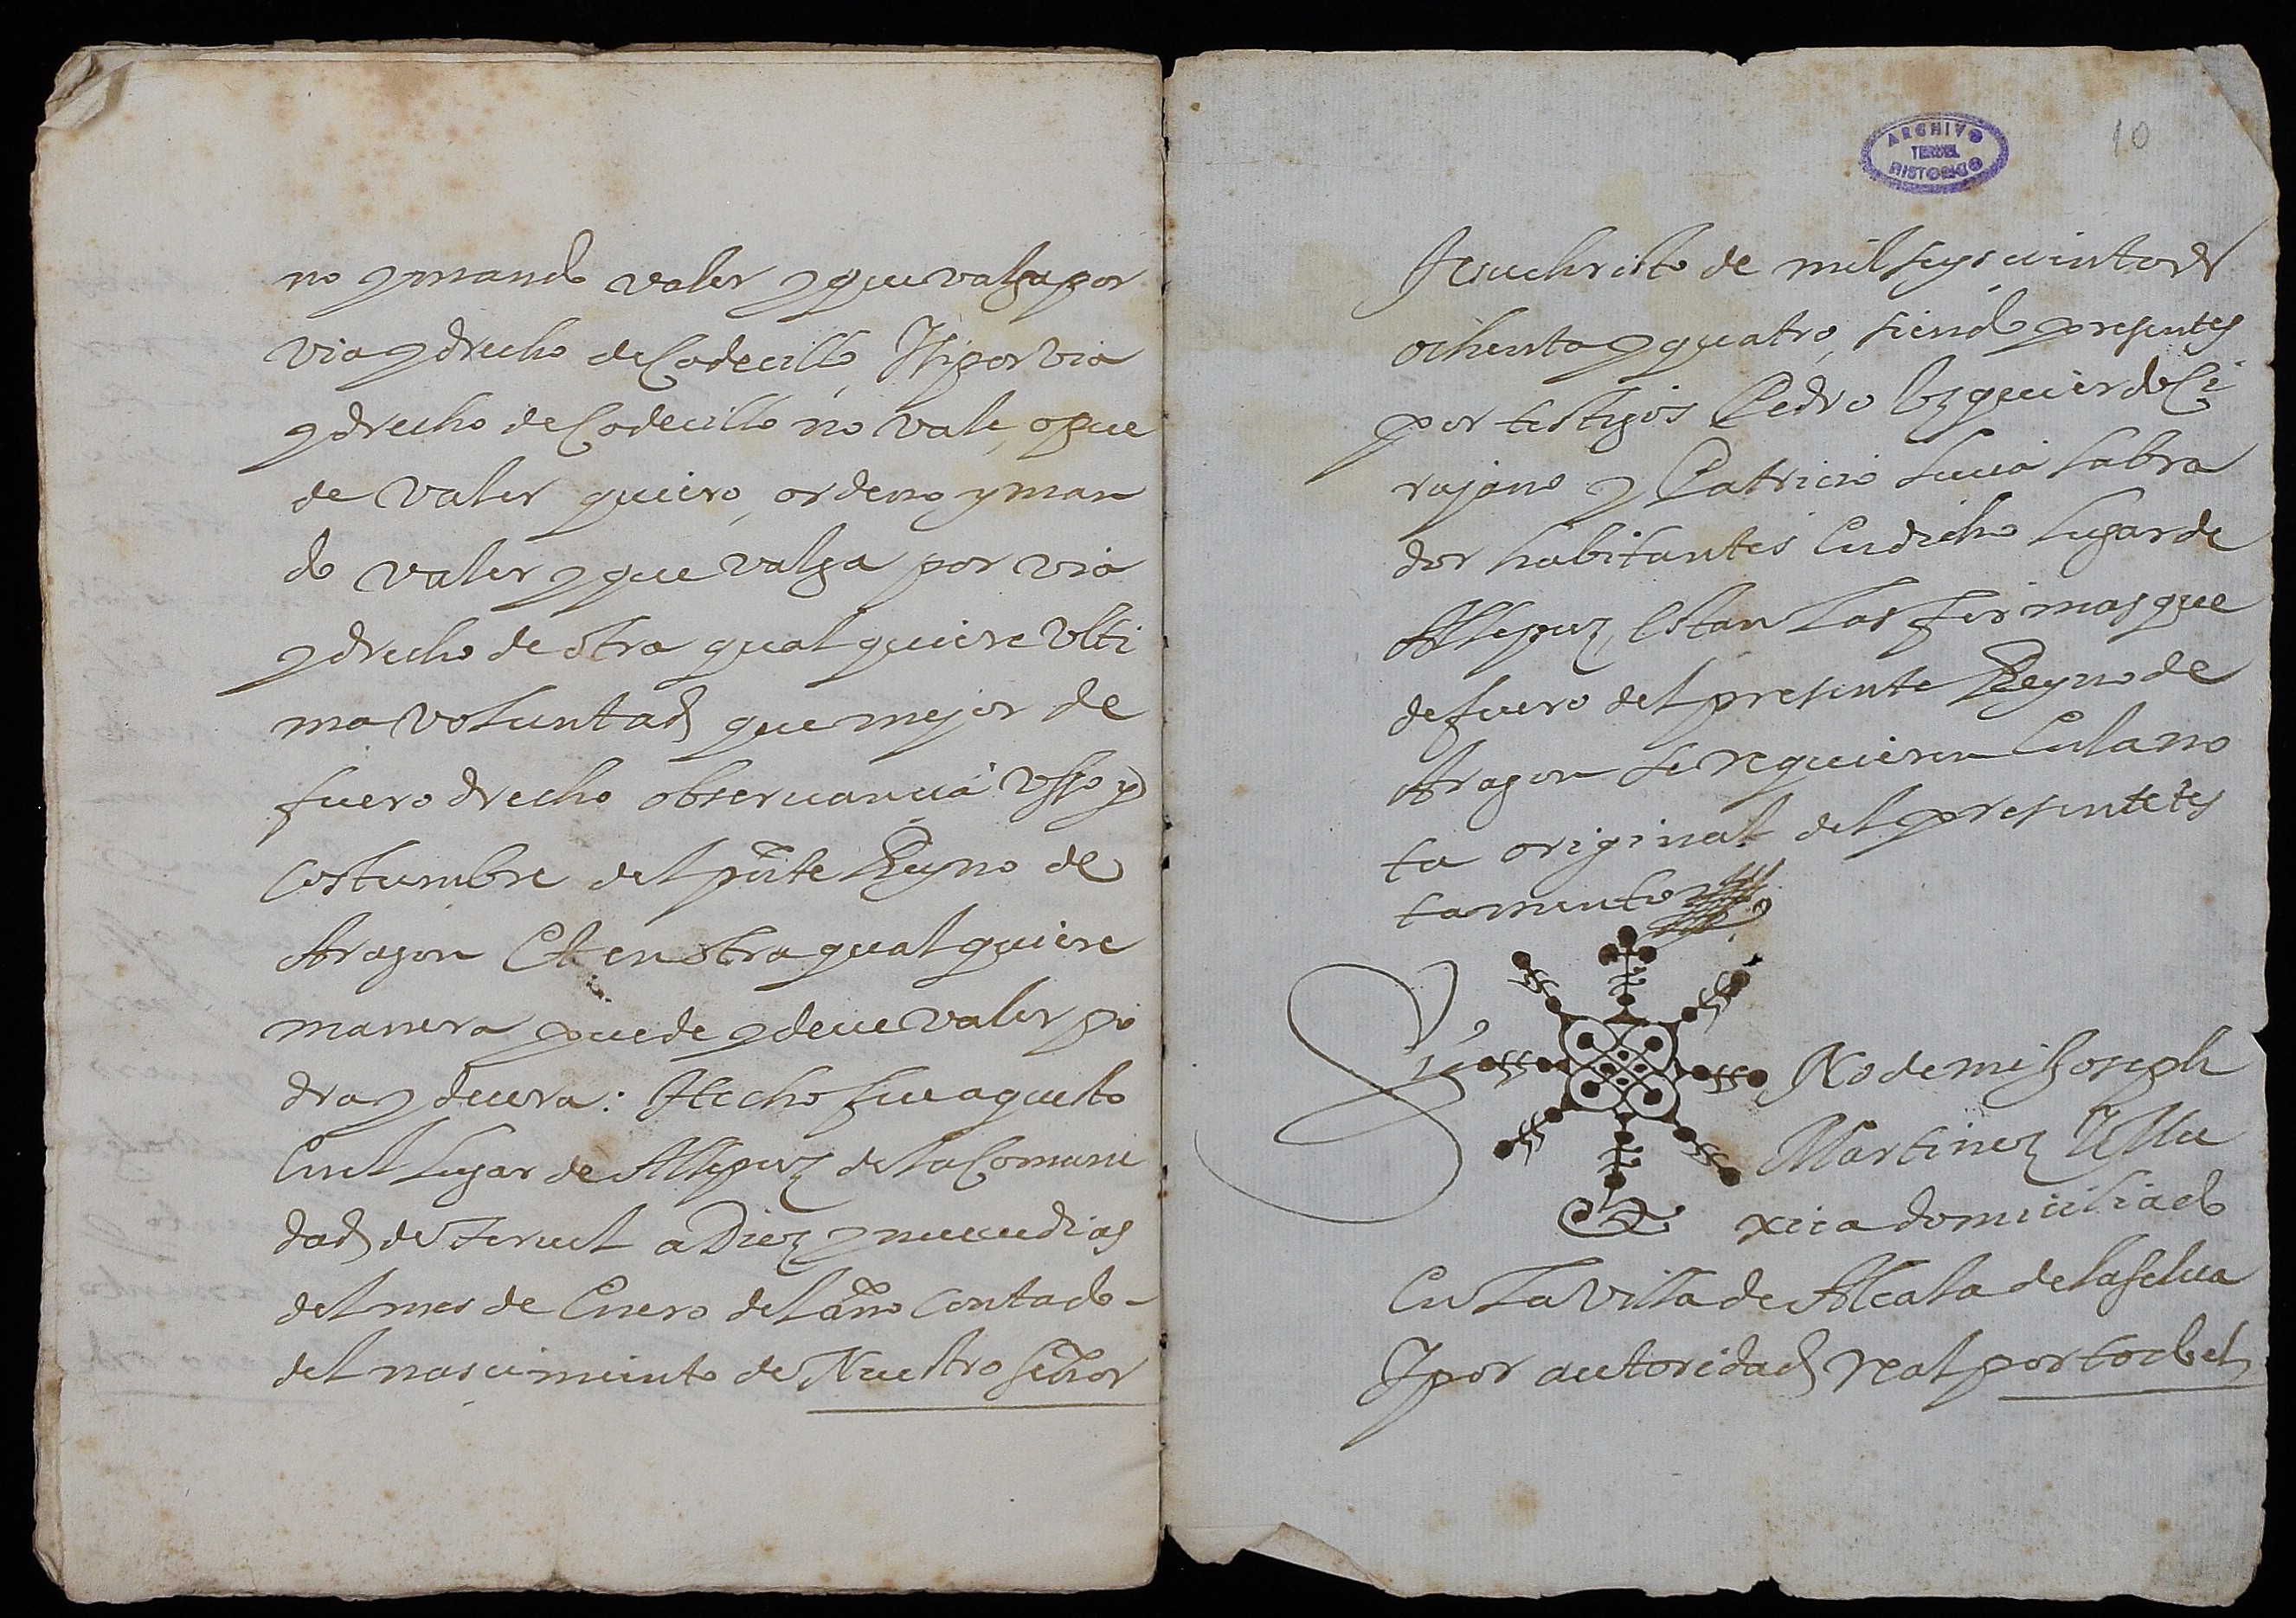 no y mando valer y que valga por
via y drecho de Codecillo, Y si por via
y drecho de Codecillo no vale, o pue
de valer quiero, ordeno y man
do valer y que valga por via
y drecho de otra qualquiere Ulti
ma voluntad que mejor de
fuero drecho observancia Usso y
costumbre del pnte Reyno de
Aragon Et en otra qualquiere
manera puede y deve valer po
dra y devera: Hecho fue aquesto
En el lugar de Allepuz de la Comuni
dad de Teruel a Diez y nueve dias
del mes de Enero del año contado
del nascimiento de Nuestro Señor
10
ARCHIVO
TERUEL
HISTORICO
Jesuchristo de mil seyscientos
ochenta y quatro, siendo presentes
por testigos Pedro Izquierdo Ci
rujano y Patricio Lucia labra
dor habitantes En dicho lugar de
Allepuz, Estan las firmas que
de fuero del presente Reyno de
Aragon se requieren En la no
ta original del presente tes
tamento
Sig No de mi Joseph
Martinez Villa
xica domiciliado
En la Villa de Alcala de la Selva
Y por autoridad real por todo el